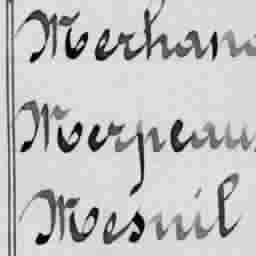 Merhand
Merpeau
Mesnil